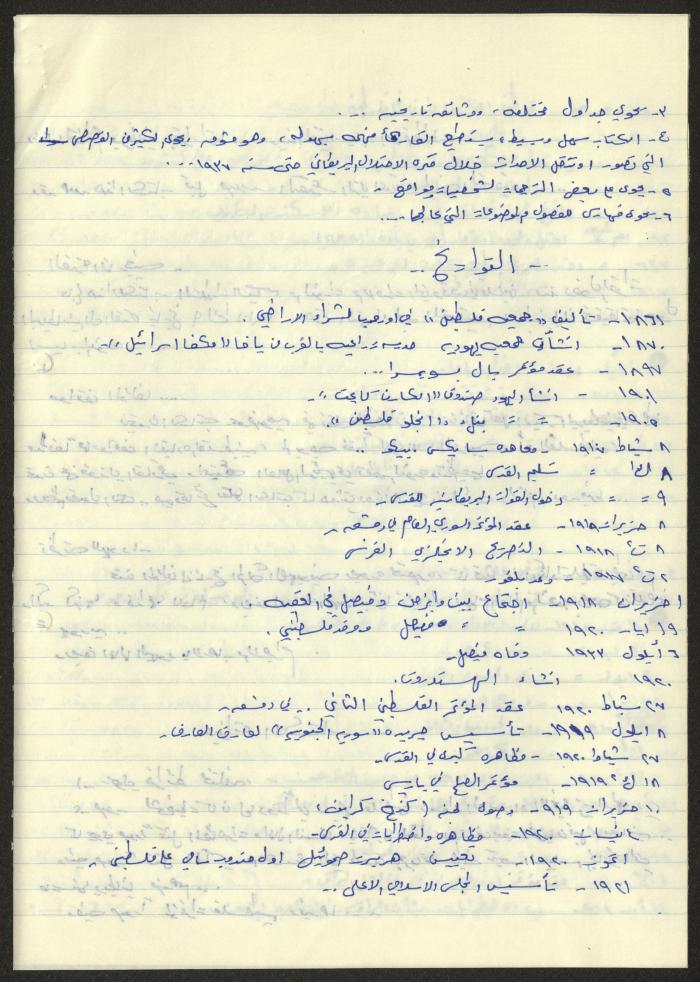 ٣- يحوي جداول مختلفة، ووثائق تاريخية ...
٤- الكتاب سهل وبسيط، يستطيع القارئ فهمه بسهولة، وهو مشوق، يحوي الكثير من القصص
التي تصور او تنقل الاحداث خلال فترة الاحتلال البريطاني حتى سنة ١٩٣٧ ...
٥- يحوي على بعض الترجمات لشخصيات ومواقع -
٦- يحوي فهارس للفصول والموضوعات التي عالجها ...
.. التواريخ ..
١٨٦١ - تأليف "جمعية فلسطين" في اوروبا لشراء الاراضي .
١٨٧٠ - انشأت جمعية يهودية مدرسة زراعية بالقرب من يافا "مكفا اسرائيل".
١٨٩٧ - عقد مؤتمر بال بسويسرا...
١٩٠١ - انشأ اليهود صندوق "الكارن كايمت" -
١٩٠٥ - " " بنك "انجلو فلسطين".
٨ شباط ١٩١٧ - معاهدة سايكس بيكو ..
٨ ك١ " تسليم القدس
٩ " " دخول القوات البريطانية للقدس -
٨ حزيران ١٩١٩ - عقد المؤتمر السوري العام في دمشق -
٨ ت٢ ١٩١٨ - التصريح الانجليزي الفرنسي
٢ ت٢ ١٩١٧ - وعد بلفور -
١ حزيران ١٩١٨ - اجتماع بين وايزمن وفيصل في العقبة
١٩ ايار ١٩٢٠ " " فيصل ووفد فلسطيني .
٦ أيلول ١٩٣٣ وفاة فيصل -
١٩٢٠ انشاء الهستدروت .
٢٧ شباط ١٩٢٠ عقد المؤتمر الفلسطيني الثاني .. في دمشق -
٨ ايلول ١٩١٩ - تأسيس جريدة "سورية الجنوبية" لعارف العارف -
٢٧ شباط ١٩٢٠ - مظاهرة كبرى في القدس -
١٨ ك٢ ١٩١٩ - مؤتمر الصلح في باريس
١٠ حزيران ١٩١٩ - وصول لجنة (كنج كراين)
٤ نيسان ١٩٢٠ - مظاهرة واضطرابات في القدس -
١ تموز ١٩٢٠ - تعيين هربرت صموئيل اول مندوب سامي على فلسطين -
١٩٢١ - تأسيس المجلس الاسلامي الاعلى ...